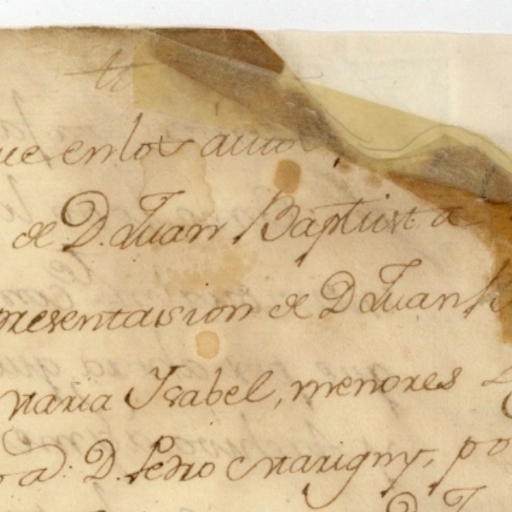 ue en los autos
de D. Juan Baptista
presentasion de D Juan
Maria Ysabel, menores
a D. Pedro Marigny, po